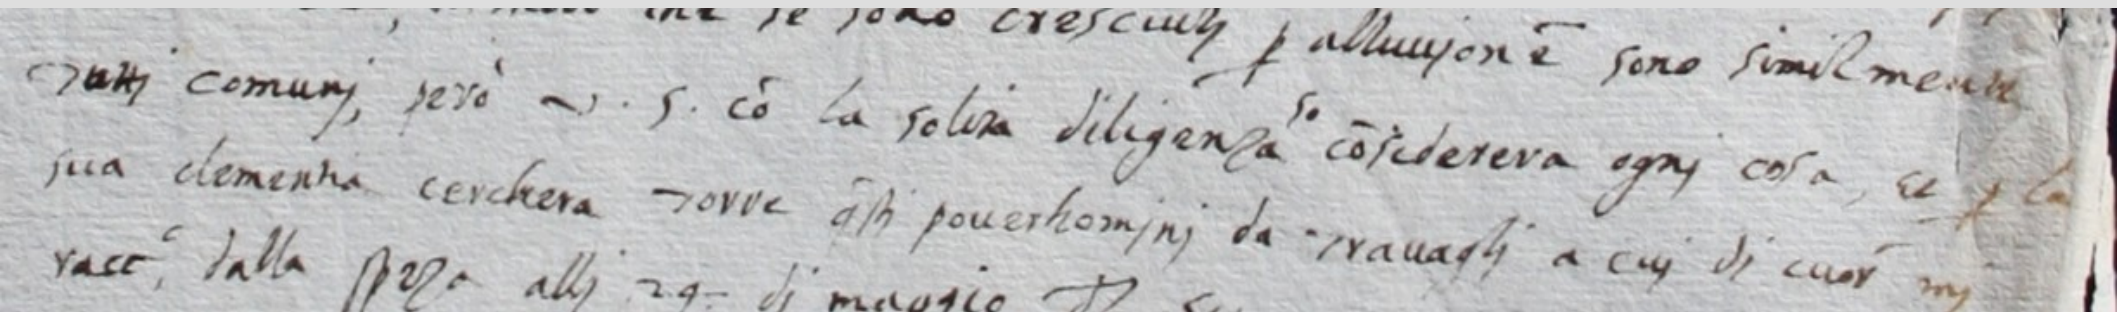 che se sono cresciuti p alluujonē sono similmente
tuttj comunj, però V. S. cō la solita diligenza so cōsidererà ogni cosa, et p la
sua clementia cercherà torre q̄sti pouerhominj da trauaglj a cuj di cuor mj
racc.º dalla spez.ª allj 29 dj maggio